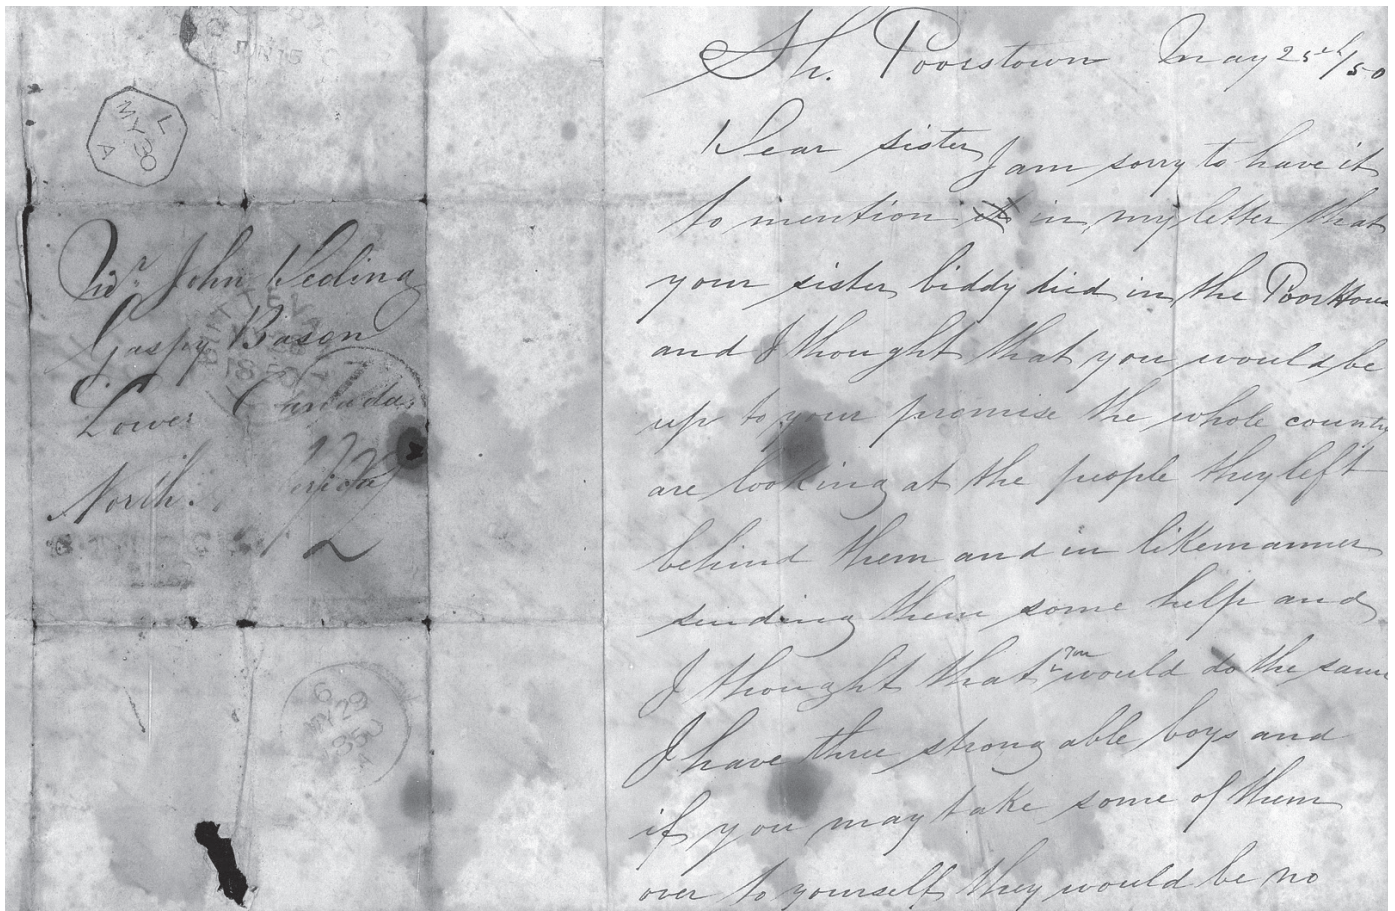 L
MY 30
A
Mr. John
Gaspy Bason
Lower Canada
North.
1/2
6
MY 29
1850
Sh. Poorstown May 25th/50
Dear sister I am sorry to have it
to mention it in my letter that
your sister biddy died in the Poor Hous
and I thought that you would be
up to your promise the whole country
are looking at the people they left
behind them and in likemanner
sending them some help and
I thought that you would do the same
I have three strong able boys and
if you may take some of them
over to yourself they would be no